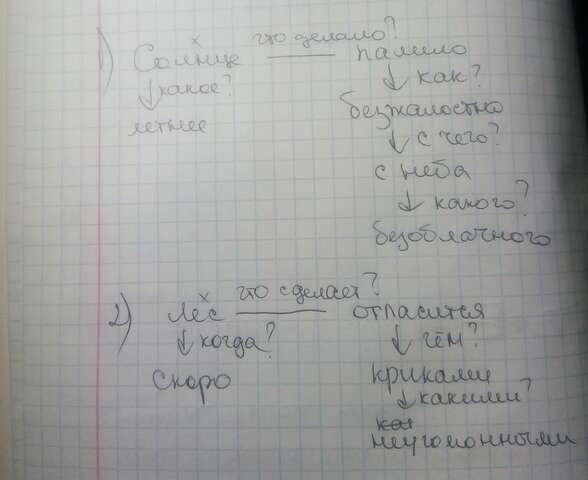 1) Солнце что делало? палило
какое? как?
летнее безжалостно
с чего?
с неба
какого?
безоблачного
2) лес что сделает? огласится
когда? чем?
скоро криками
какими?
неугомонными